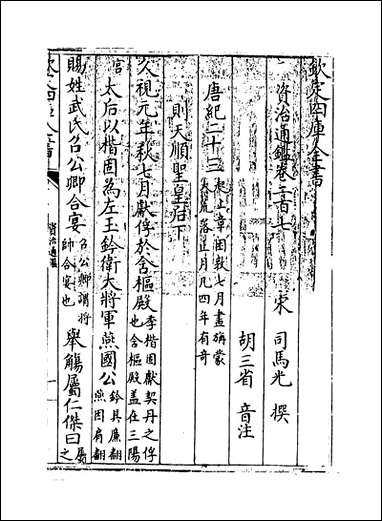 欽定四庫全書
資治通鑑卷二百七
宋 司馬光 撰
胡三省 音注
唐紀二十三 起上章困敦七月盡旃蒙
大荒落正月凡四年有奇
則天順聖皇后下
久視元年秋七月獻俘於含樞殿 李楷固獻契丹之俘
也含樞殿蓋在三陽
宮 太后以楷固為左玉鈐衛大將軍燕國公 鈐其廉翻
燕因肩翻
賜姓武氏召公卿合宴 召公卿謂將
帥合宴也 舉觴屬仁傑曰 屬
之
欽定四庫全書
資治通鑑